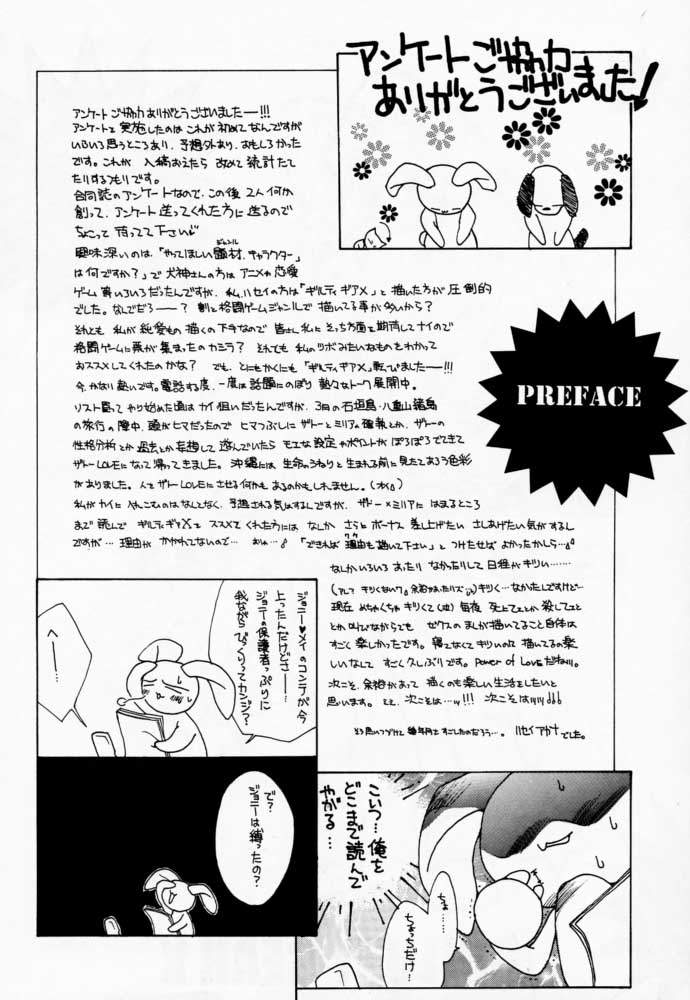 アンケートご協力
ありがとうございました!
アンケートご協力ありがとうございました──!!!
アンケートを実施したのはこれが初めてなんですが
いろいろ思うところあり、予想外あり、おもしろかった
です。これが入稿おえたら改めて統計たて
たりするつもりです。
合同誌のアンケートなので、この後2人何か
創って、アンケート送ってくれた方に送るので
ちょこっと待ってて下さい
興味深いのは、「やってほしい題材、キャラクター
は何ですか?」で犬神さんの方はアニメや恋愛
ゲーム等いろいろだったんですが、私、ハセイの方は「ギルティギアX」と描いた方が圧倒的
でした。なんでだろ──? 割と格闘ゲームジャンルで描いてる事が多いから?
それとも私が純愛もの描くの下手なので皆さん私にそっち方面を期待してナイので
格闘ゲームに票が集まったのカシラ? それとも私のツボみたいなものをわかって
おススメしてくれたのかな? でも、とにもかくにも「ギルティギアX」転びました──!!!
今、かなり熱いです。電話する度、一度は話題にのぼり熱くなトーク展開中。
リスト見ってやり始めた頃はカイ狙いだったんですが、3月の石垣島・八重山諸島
の旅行の際中、頭がヒマだったでヒマつぶしにザトーとミリアの確執とか、ザトーの
性格分析とか過去とか妄想して遊んでいたらモエな設定やポイントがぽろぽろでてきて
ザトーLOVEになって帰ってきました。沖縄には生命のうねりと生まれる前に見たであろう色彩
がありました。人をザトーLOVEにさせる何かもあるのかもしれません。
私がカイにやんごとないのはなんとなく、予想される気はするんですが、ザトー×ミリアにはまるところ
まで読んでギルティギアXをススメてくれた方にはなにかしらさらにボーナス差上げたいさしあげたい気がするん
ですが…理由がかかれてないので…
「できれば理由も描いて下さい」とつけたせばよかったかしら…
なにかいろいろあったりなかったりして日程がキリい……
キリく…なかったんですけど…
現在めちゃくちゃキリくて毎夜死ェェとか殺してェェ
とか叫びながらでもゼクスのまんが描いてること自体は
すごく楽しかったです。寝てなくてキリいのに描いてるの楽
しいなんてすごく久しぶりです。Power of Loveだね!!!
次こそ、余裕があって描くのも楽しい生活をしたいと
思います。とと、次こそは…!!! 次こそは!!!
そう思いつづけて幾年月をすごしたのだろう…。ハセイアガナでした。
PREFACE
ジョニー♥メイのコンテが今
上ったんだけどさー…
ジョニーの保護者っぷりに
我ながらびっくりってカンジ?
で?
ジョニーは縛ったの?
こいつ…俺を
どこまで読んで
やがる…
ちょ…
ちょっちだけ…